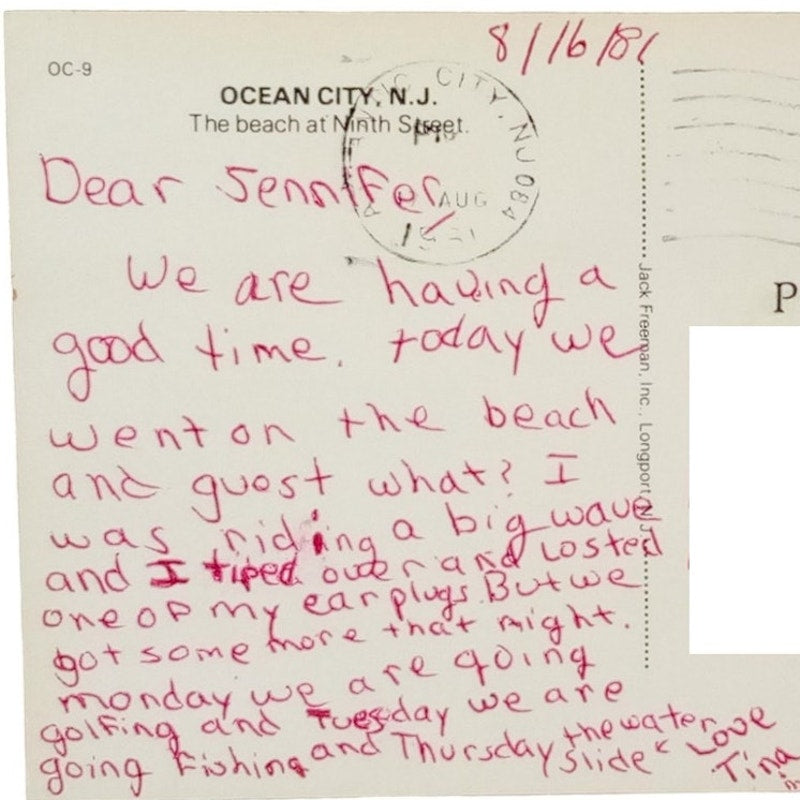 8/16/81
OC-9
OCEAN CITY, N.J.
The beach at Ninth Street.
CITY, NJ 084
PM
AUG
Dear Jennifer,
We are having a
good time. today we
went on the beach
and guest what? I
was riding a big wave
and I tiped over and losted
one of my earplugs. But we
got some more that night.
monday we are going
golfing and Tuesday we are
going Fishing and Thursday the water
slide
Love
Tina
Jack Freeman, Inc., Longport, N.J.
P